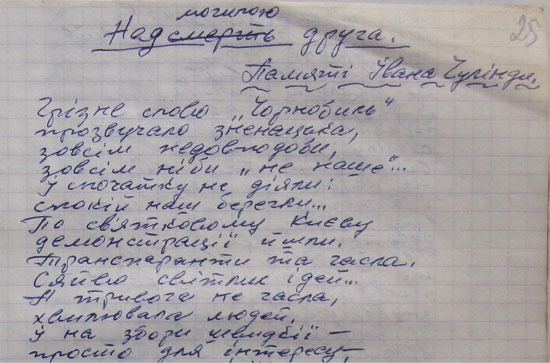 могилою
Над смерть друга.
25
Памяті Івана Чулінди.
Грізне слово „Чорнобиль"
прозвучало зненацька,
зовсім недовподоби,
зовсім ніби „не наше"...
І спочатку не діяли:
спокій наш берегли...
По святковому Києву
демонстрації йшли.
Транспаранти та гасла.
Сяйво світлих ідей...
А тривога не гасла,
хвилювала людей.
І на збори швидкії —
просто для інтересу,